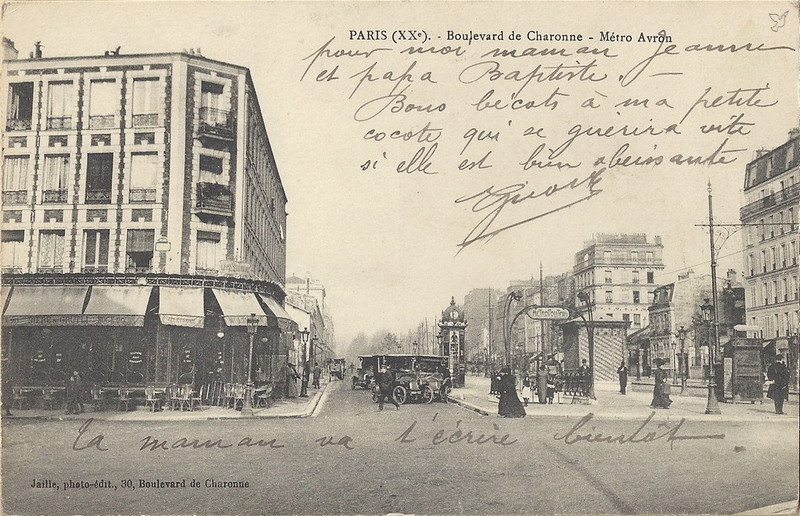 PARIS (XXe). - Boulevard de Charonne - Métro Avron
pour moi maman Jeanne
et papa Baptiste. —
Bons bécots à ma petite
cocote qui se guérira vite
si elle est bien obeissante
Ta maman va t'écrire bientôt.
Jaille, photo-édit., 30, Boulevard de Charonne